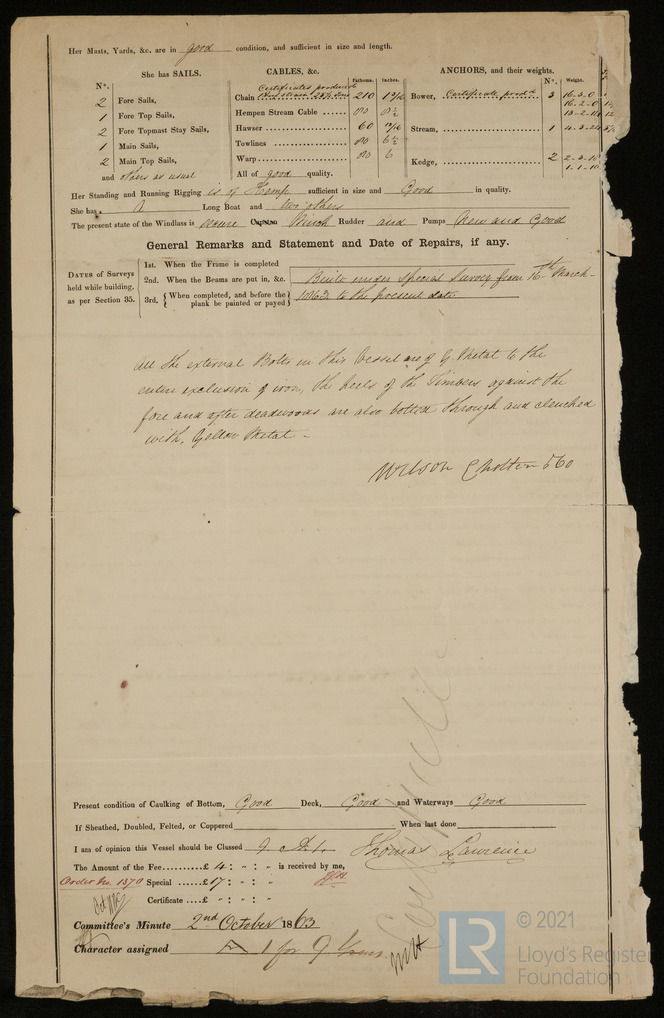 Her Masts, Yards, &c. are in good condition, and sufficient in size and length.
She has SAILS.
N°.
2 Fore Sails,
1 Fore Top Sails,
2 Fore Topmast Stay Sails,
1 Main Sails,
2 Main Top Sails,
and others as usual
CABLES, &c.
Fathoms. Inches.
Certificates produced
Chain 210
Hempen Stream Cable
Hawser 60
Towlines
Warp 6
All of good quality.
ANCHORS, and their weights.
N°. Weight.
Bower, Certificate prod 3 16.3.0
16.2.0
Stream, 1
Kedge, 2
Her Standing and Running Rigging is of Hemp sufficient in size and Good in quality.
She has A Long Boat and two others
The present state of the Windlass is Capstan Winch Rudder and Pumps New and Good
General Remarks and Statement and Date of Repairs, if any.
DATES of Surveys held while building, as per Section 35.
1st. When the Frame is completed
2nd. When the Beams are put in, &c.
3rd. { When completed, and before the plank be painted or payed }
Built under Special Survey from 16th March
1863 to the present date
All the external Bolts in this Vessel are of Y Metal to the
entire exclusion of iron, the heels of the Timbers against the
fore and after deadwoods are also bolted through and clenched
with, Yellow Metal -
Wilson 560
Present condition of Caulking of Bottom, Good Deck, Good and Waterways Good
If Sheathed, Doubled, Felted, or Coppered When last done
I am of opinion this Vessel should be Classed 9 A.1. Thomas Lawrence
The Amount of the Fee......£ 4 : " : " is received by me,
Order No. 1870 Special ......£ 17 : " : "
Certificate ....£ " : " : "
Committee's Minute 2nd October 1863
Character assigned A 1 for 9 Years
© 2021
LR
Lloyd's Register
Foundation